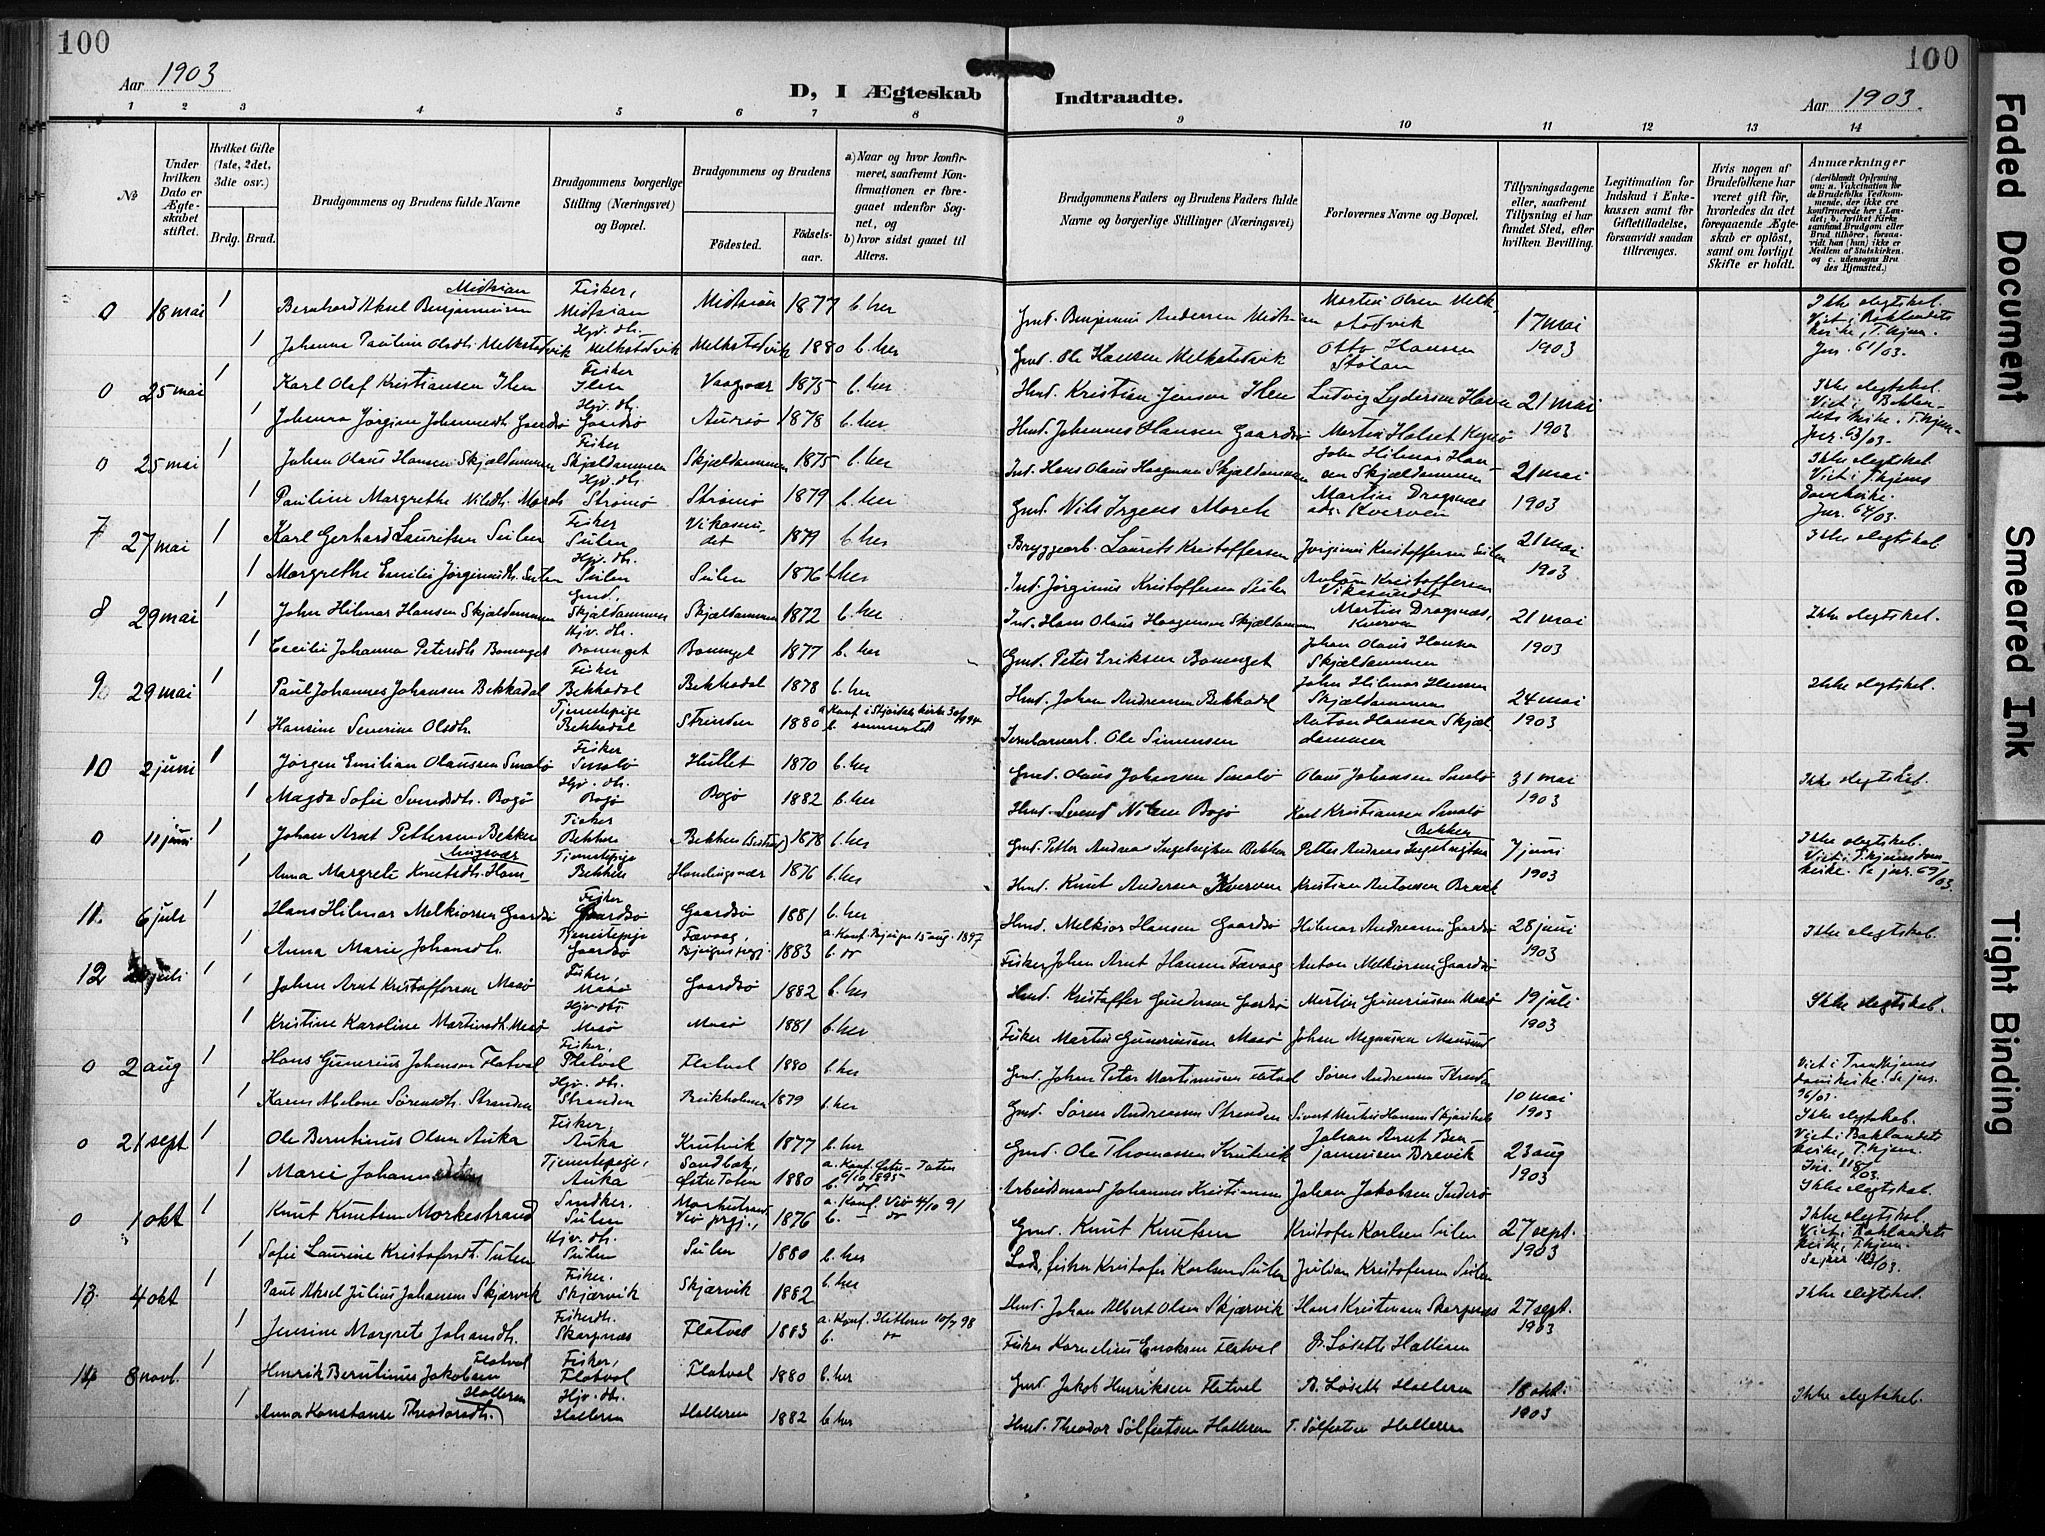 100
100
Aar 1903
D, I Ægteskab Indtraadte.
Aar 1903.
1 2 3 4 5 6 7 8 9 10 11 12 13 14
№
Under hvilken Dato er Ægteskabet stiftet.
Hvilket Gifte (1ste, 2det, 3die osv.)
Brdg. Brud.
Brudgommens og Brudens fulde Navne
Brudgommens borgerlige Stilling (Næringsvei) og Bopæl.
Brudgommens og Brudens
Födested.
Födsels-aar.
a) Naar og hvor konfirmeret, saafremt Konfirmationen er foregaaet udenfor Sognet, og
b) hvor sidst gaaet til Alters.
Brudgommens Faders og Brudens Faders fulde Navne og borgerlige Stillinger (Næringsvei)
Forlovernes Navne og Bopæl.
Tillysningsdagene eller, saafremt Tillysning ei har fundet Sted, efter hvilken Bevilling.
Legitimation for Indskud i Enkekassen samt for Giftetilladelse, forsaavidt saadan tiltrænges.
Hvis nogen af Brudefolkene har været gift för, hvorledes da det foregaaende Ægteskab er oplöst, samt om lovligt Skifte er holdt.
Anmærkninger
(deriblandt Oplysning om: a. Vakcination for de Brudefolks Vedkommende, der ikke ere konfirmerede her i Landet; b. hvilket Kirkesamfund Brudgom eller Brud tilhörer, forsaavidt han (hun) ikke er Medlem af Statskirken. og c. udensogns Brudes Hjemsted.)
0 18 mai 1 Bernhard Aksel Benjaminsen Midtsian Fisker, Midtsian Midtsian 1877 b. her Gmd. Benjamin Andersen Midtsian Martin Olsen Melkstødvik 17 mai 1903 Ikke slegtskab. Viet i Baklandets kirke, T.hjem. Jnr. 61/03.
1 Johanna Pauline Olsdtr. Melkstødvik Hjv. dtr. Melkstødvik Melkstødvik 1880 b. her Gmd. Ole Hansen Melkstødvik Otto Hansen Stølan
0 25 mai 1 Karl Olaf Kristiansen Ilen Fisker Ilen Vaagvær 1875 b. her Hmd. Kristian Jenson Ilen Ludvig Lydersen Havn 21 mai 1903 Ikke slegtskab. Viet i Baklandets kirke. T.hjem. Jnr. 63/03.
1 Johanna Jørgine Johannesdtr. Gaardsø Hjv. dtr. Gaardsø Aursø 1878 b. her Hmd. Johannes Hansen Gaardsø Martin Halset
0 25 mai 1 Johan Olaus Hansen Skjældammen Fisker Skjældammen Skjældammen 1875 b. her Ind. Hans Olaus Haagensen Skjældammen John Hilmar Hansen Skjældammen 21 mai 1903 Ikke slegtskab. Viet i T.hjems domkirke. Jnr. 64/03.
1 Pauline Margrethe Nilsdtr. Morch Hjv. dtr. Strømø Strømø 1879 b. her Gmd. Nils Irgens Morch Martin Dragsnes Kverven
7 27 mai 1 Karl Gerhard Lauritsen Sulen Fisker Sulen Vikasundet 1879 b. her Bryggearb. Laurits Kristoffersen Jørginus Kristoffersen Sulen 21 mai 1903 Ikke slegtskab
1 Margrethe Emilie Jørginusdtr. Sulen Hjv. dtr. Sulen Sulen 1876 b. her Ind. Jørginus Kristoffersen Sulen Anton Kristoffersen Vikasundet
8 29 mai 1 John Hilmar Hansen Skjældammen Gmd. Skjældammen Skjældammen 1872 b. her Ind. Hans Olaus Haagensen Skjældammen Martin Dragsnæs, Kverven 21 mai 1903 Ikke slegtskab.
1 Cecilie Johanna Petersdtr. Bonenget Hjv. dtr. Bonenget Bonenget 1877 b. her Gmd. Peter Eriksen Bonenget Johan Olaus Hansen Skjældammen
9 29 mai 1 Paul Johannes Johansen Bekkadal Fisker Bekkadal Bekkadal 1878 b. her Hmd. Johan Andreasen Bekkadal John Hilmar Hansen Skjældammen 24 mai 1903 Ikke slegtskab.
1 Hansine Severine Olsdtr. Tjenestepige Bekkadal Strinden 1880 b. sammested Jernbanearb. Ole Simonsen Anton Hansen Skjældammen
10 2 juni 1 Jørgen Emilian Olaussen Smalø Fisker Smalø Hullet 1870 b. her Gmd. Olaus Johansen Smalø Olaus Johansen Smalø 31 mai 1903 Ikke slegtskab.
1 Magda Sofie Svendsdtr. Bogø Hjv. dtr. Bogø Bogø 1882 b. her Hmd. Svend Nilsen Bogø Karl Kristiansen Smalø
0 11 juni 1 Johan Arnt Pettersen Bekken Fisker Bekken Bekken 1878 b. her Gmd. Petter Andreas Ingebrigtsen Bekken Petter Andreas Ingebrigtsen Bekken 7 juni 1903 Ikke slegtskab. Viet i T.hjems domkirke. Se jnr. 69/03.
1 Anna Margrete Knutsdtr. Hamlingsvær Tjenestepige Bekken Hamlingsvær 1876 b. her Hmd. Knut Andersen Kverven Kristian Antonsen
11 6 juli 1 Hans Hilmar Melkiorsen Gaardsø Fisker Gaardsø Gaardsø 1881 b. her Hmd. Melkior Hansen Gaardsø Hilmar Andreassen Gaardsø 28 juni 1903 Ikke slegtskab.
1 Anna Marie Johansdtr. Tjenestepige Gaardsø Fævaag, 1883 a. Konf. 15 aug. 1897 b. do Fisker Johan Arnt Hansen Fævaag Anton Melkiorsen Gaardsø
12 juli 1 Johan Arnt Kristoffersen Masø Fisker, Masø Gaardsø 1882 b. her Hmd. Kristoffer Gundersen Gaardsø Martin Guneriussen Masø 19 juli 1903 Ikke slegtskab.
1 Kristine Karoline Martinsdtr. Masø Hjv. dtr. Masø Masø 1881 b. her Fisker Martin Guneriussen Masø Johan Magnussen Mausund
0 2 aug 1 Hans Gunerius Johansen Flatval Fisker, Flatval Flatval 1880 b. her Gmd. Johan Peter Martinusen Flatval Søren Andreasen Stranden 10 mai 1903 Viet i Trondhjems domkirke. Se jnr. 96/03. Ikke slegtskab.
1 Karen Malene Sørensdtr. Stranden Hjv. dtr. Stranden Birkholmen 1879 b. her Gmd. Søren Andreasen Stranden Sivert Martin Hansen
0 21 sept 1 Ole Berntinus Olsen Auka Fisker, Auka Knutvik 1877 b. her Gmd. Ole Thomassen Knutvik Johan Arnt Benjaminsen Brevik 23 aug 1903 Viet i Baklandets kirke, T.hjem. Jnr. 118/03. Ikke slegtskab.
1 Marie Johannesdtr. Tjenestepige, Auka Sandbak, Østre Toten 1880 a. Konf. Østre Toten 6/10 1895 b. do Arbeidsmand Johannes Kristiansen Johan Jakobsen Inderø
0 1 okt 1 Knut Knutsen Morkestrand Snedker. Sulen Morkestrand Vø prgj., 1876 a. Konf. Vø 4/10 91 b. do Gmd. Knut Knutsen Kristofer Karlsen Sulen 27 sept. 1903 Ikke slegtskab Viet i Baklandets kirke, T.hjem.
1 Sofie Laurine Kristofersdtr. Sulen Hjv. dtr. Sulen Sulen 1880 b. her Lods, fisker Kristofer Karlsen Sulen Julian Kristofersen Sulen
13 4 okt 1 Paul Aksel Julius Johansen Skjærvik Fisker. Skjærvik Skjærvik 1882 b. her Hmd. Johan Albert Olsen Skjærvik Hans Kristiansen Skarpnæs 27 sept. 1903 Ikke slegtskab.
1 Jensine Margrete Johansdtr. Fiskerdtr. Skarpnæs Flatval 1883 a. Konf. Hitteren 10/7 98 b. do Fisker Kornelius Eriksen Flatval O. Løseth Halleren
14 8 novb. 1 Henrik Berntinus Jakobsen Flatval Fisker, Flatval Flatval 1880 b. her Gmd. Jakob Henriksen Flatval O. Løseth Halleren 18 okt. 1903 Ikke slegtskab.
1 Anna Konstanse Theodorsdtr. Halleren Hjv. dtr. Halleren Halleren 1882 b. her Hmd. Theodor Sølfestsen Halleren T. Sølfestsen Halleren
Faded Document
Smeared Ink
Tight Binding